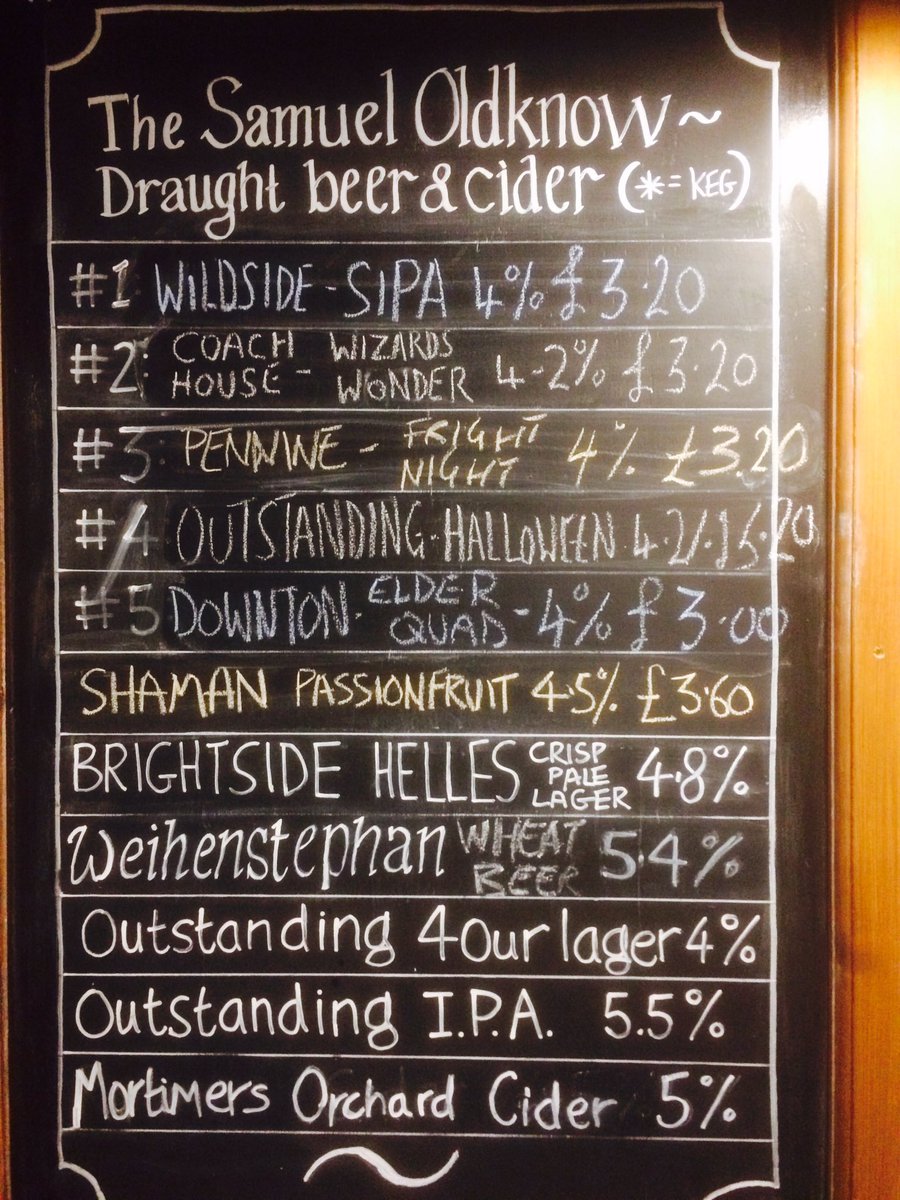 The Samuel Oldknow ~
Draught beer & cider (*= KEG)
#1 WILDSIDE - SIPA 4% £3.20
#2: COACH HOUSE - WIZARDS WONDER 4.2% £3.20
#3: PENNINE - FRIGHT NIGHT 4% £3.20
#4 OUTSTANDING - HALLOWEEN 4.2% £3.20
#5 DOWNTON - ELDER QUAD - 4% £3.00
SHAMAN PASSIONFRUIT 4.5% £3.60
BRIGHTSIDE HELLES CRISP PALE LAGER 4.8%
Weihenstephan WHEAT BEER 5.4%
Outstanding 4our lager 4%
Outstanding I.P.A. 5.5%
Mortimers Orchard Cider 5%